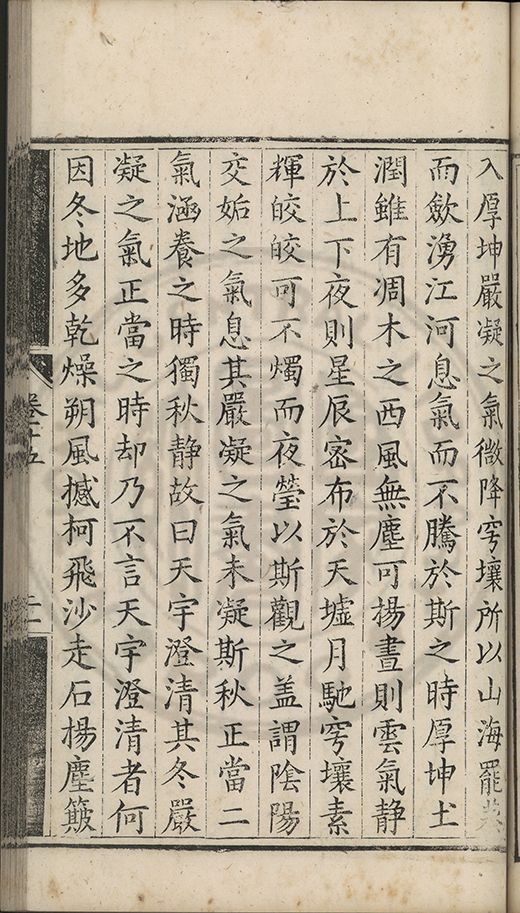 入厚坤嚴凝之氣微降穹壤所以山海罷蒸
而歛湧江河息氣而不騰於斯之時厚坤土
潤雖有凋木之西風無塵可揚晝則雲氣静
於上下夜則星辰宻布於天墟月馳穹壤素
輝皎皎可不燭而夜瑩以斯觀之盖謂陰陽
交姤之氣息其嚴凝之氣未凝斯秋正當二
氣涵養之時獨秋静故曰天宇澄清其冬嚴
凝之氣正當之時却乃不言天宇澄清者何
因冬地多乾燥朔風撼柯飛沙走石楊塵簸
卷十五
二